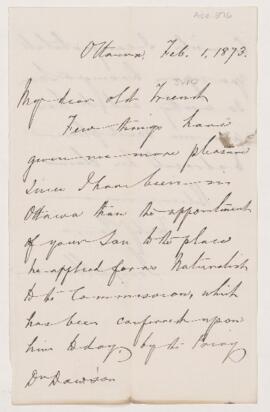 Ottawa, Feb. 1, 1873.
My dear old Friend
Few things have
given me more pleasure
since I have been in
Ottawa than the appointment
of your Son to the place
he applied for as Naturalist
to the Commission, which
has been conferred upon
him today, by the Privy
Dr Dawson